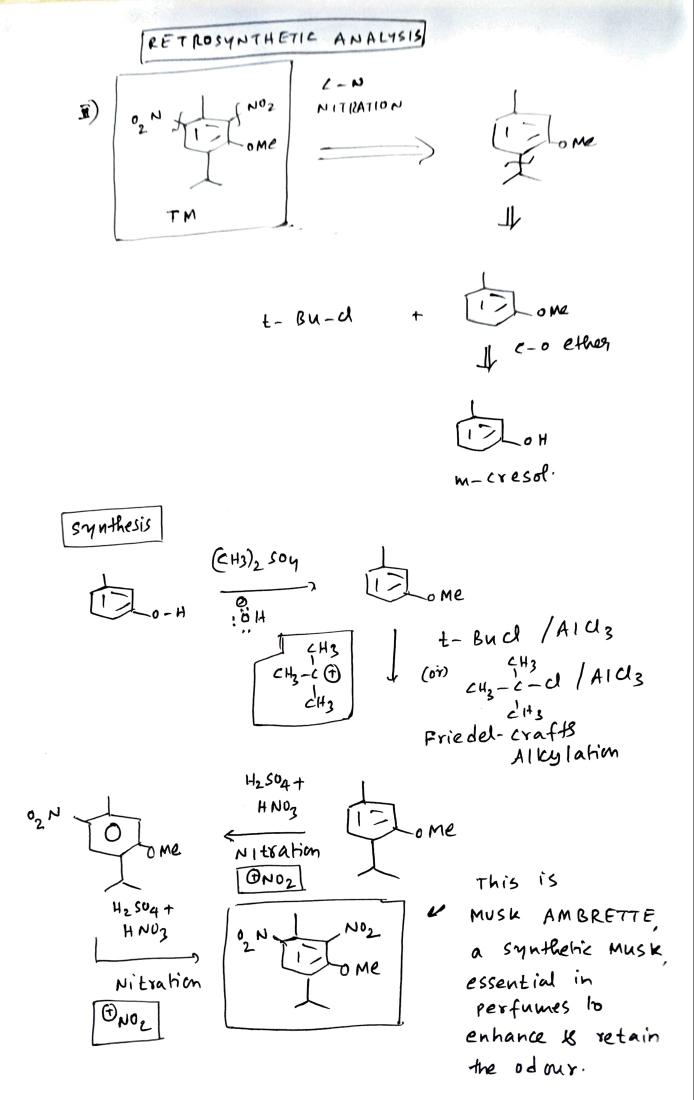 RETROSYNTHETIC ANALYSIS
II)
O2N
NO2
OMe
TM
C-N
NITRATION
OMe
t-Bu-Cl + OMe
C-O ether
OH
m-cresol.
Synthesis
O-H
(CH3)2 SO4
⊖:ÖH
OMe
CH3
CH3-C⊕
CH3
t-BuCl /AlCl3
(or)
CH3
CH3-C-Cl /AlCl3
CH3
Friedel-crafts
Alkylation
OMe
H2SO4+
HNO3
Nitration
⊕NO2
O2N
OMe
H2SO4+
HNO3
Nitration
⊕NO2
O2N
NO2
OMe
✓ This is
MUSK AMBRETTE,
a synthetic MUSK,
essential in
perfumes to
enhance & retain
the odour.